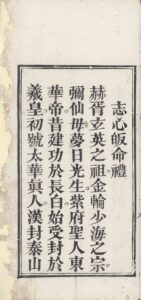 志心皈命禮
赫胥玄英之祖金輪少海之宗
彌仙毋夢日光生紫府聖人東
華帝昔建功於長白始受封於
羲皇初號太華眞人漢封泰山